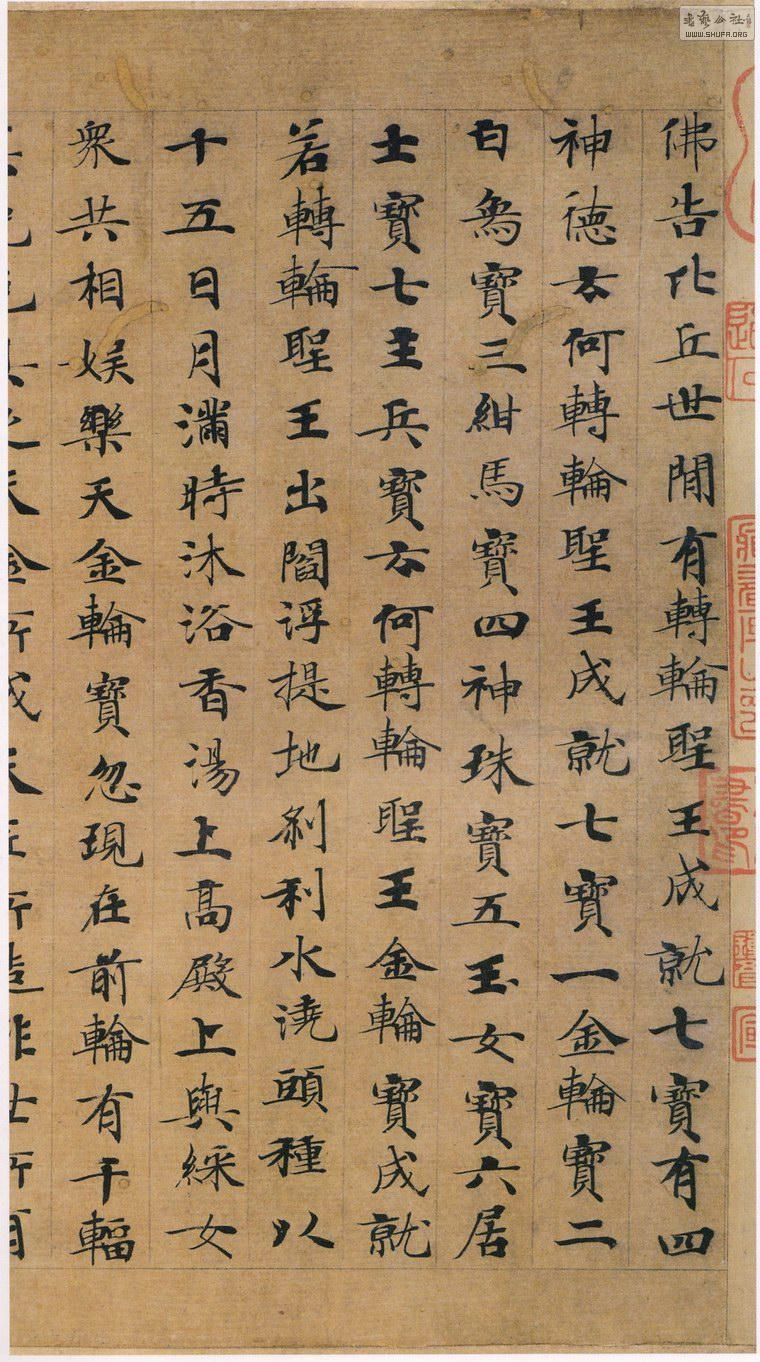 書藝公社
WWW.SHUFA.ORG
佛告比丘世間有轉輪聖王成就七寶有四
神德云何轉輪聖王成就七寶一金輪寶二
白象寶三紺馬寶四神珠寶五玉女寶六居
士寶七主兵寶云何轉輪聖王金輪寶成就
若轉輪聖王出閻浮提地剎利水澆頭種以
十五日月滿時沐浴香湯上高殿上與綵女
眾共相娛樂天金輪寶忽現在前輪有千輻
色具足天金所成天匠所造非世所有